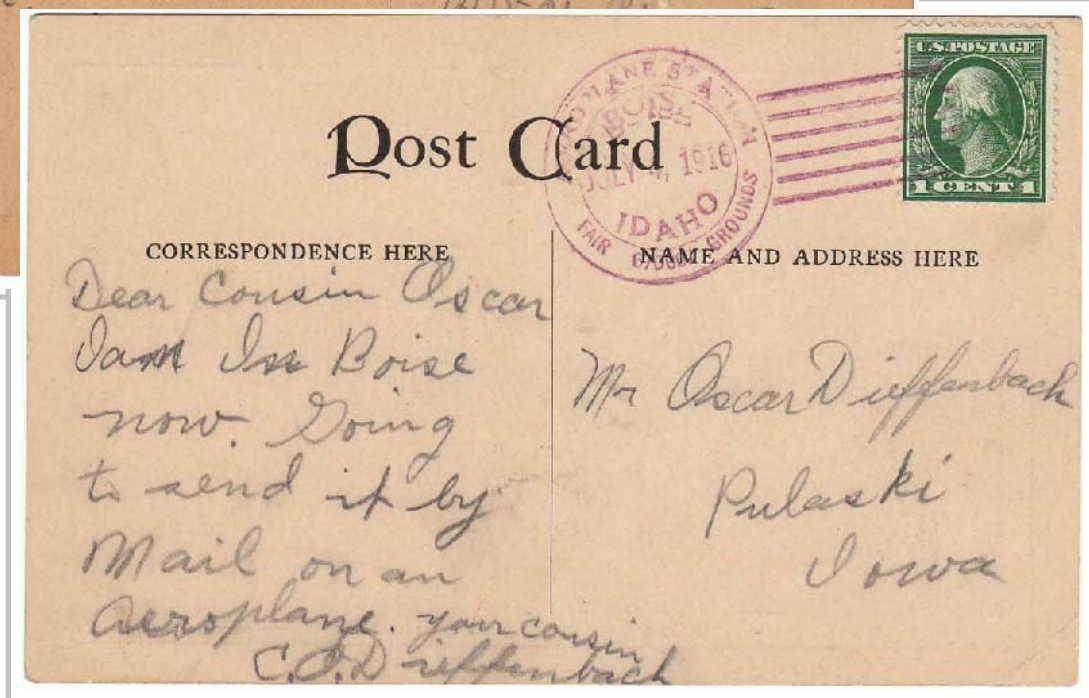 Post Card
U.S. POSTAGE
1 CENT 1
STATION
BOISE
JULY 4, 1916
IDAHO
FAIR GROUNDS
CORRESPONDENCE HERE
NAME AND ADDRESS HERE
Dear Cousin Oscar
I am In Boise
now. Going
to send it by
Mail on an
Aeroplane. your cousin
C.O. Dieffenbach
Mr Oscar Dieffenbach
Pulaski
Iowa